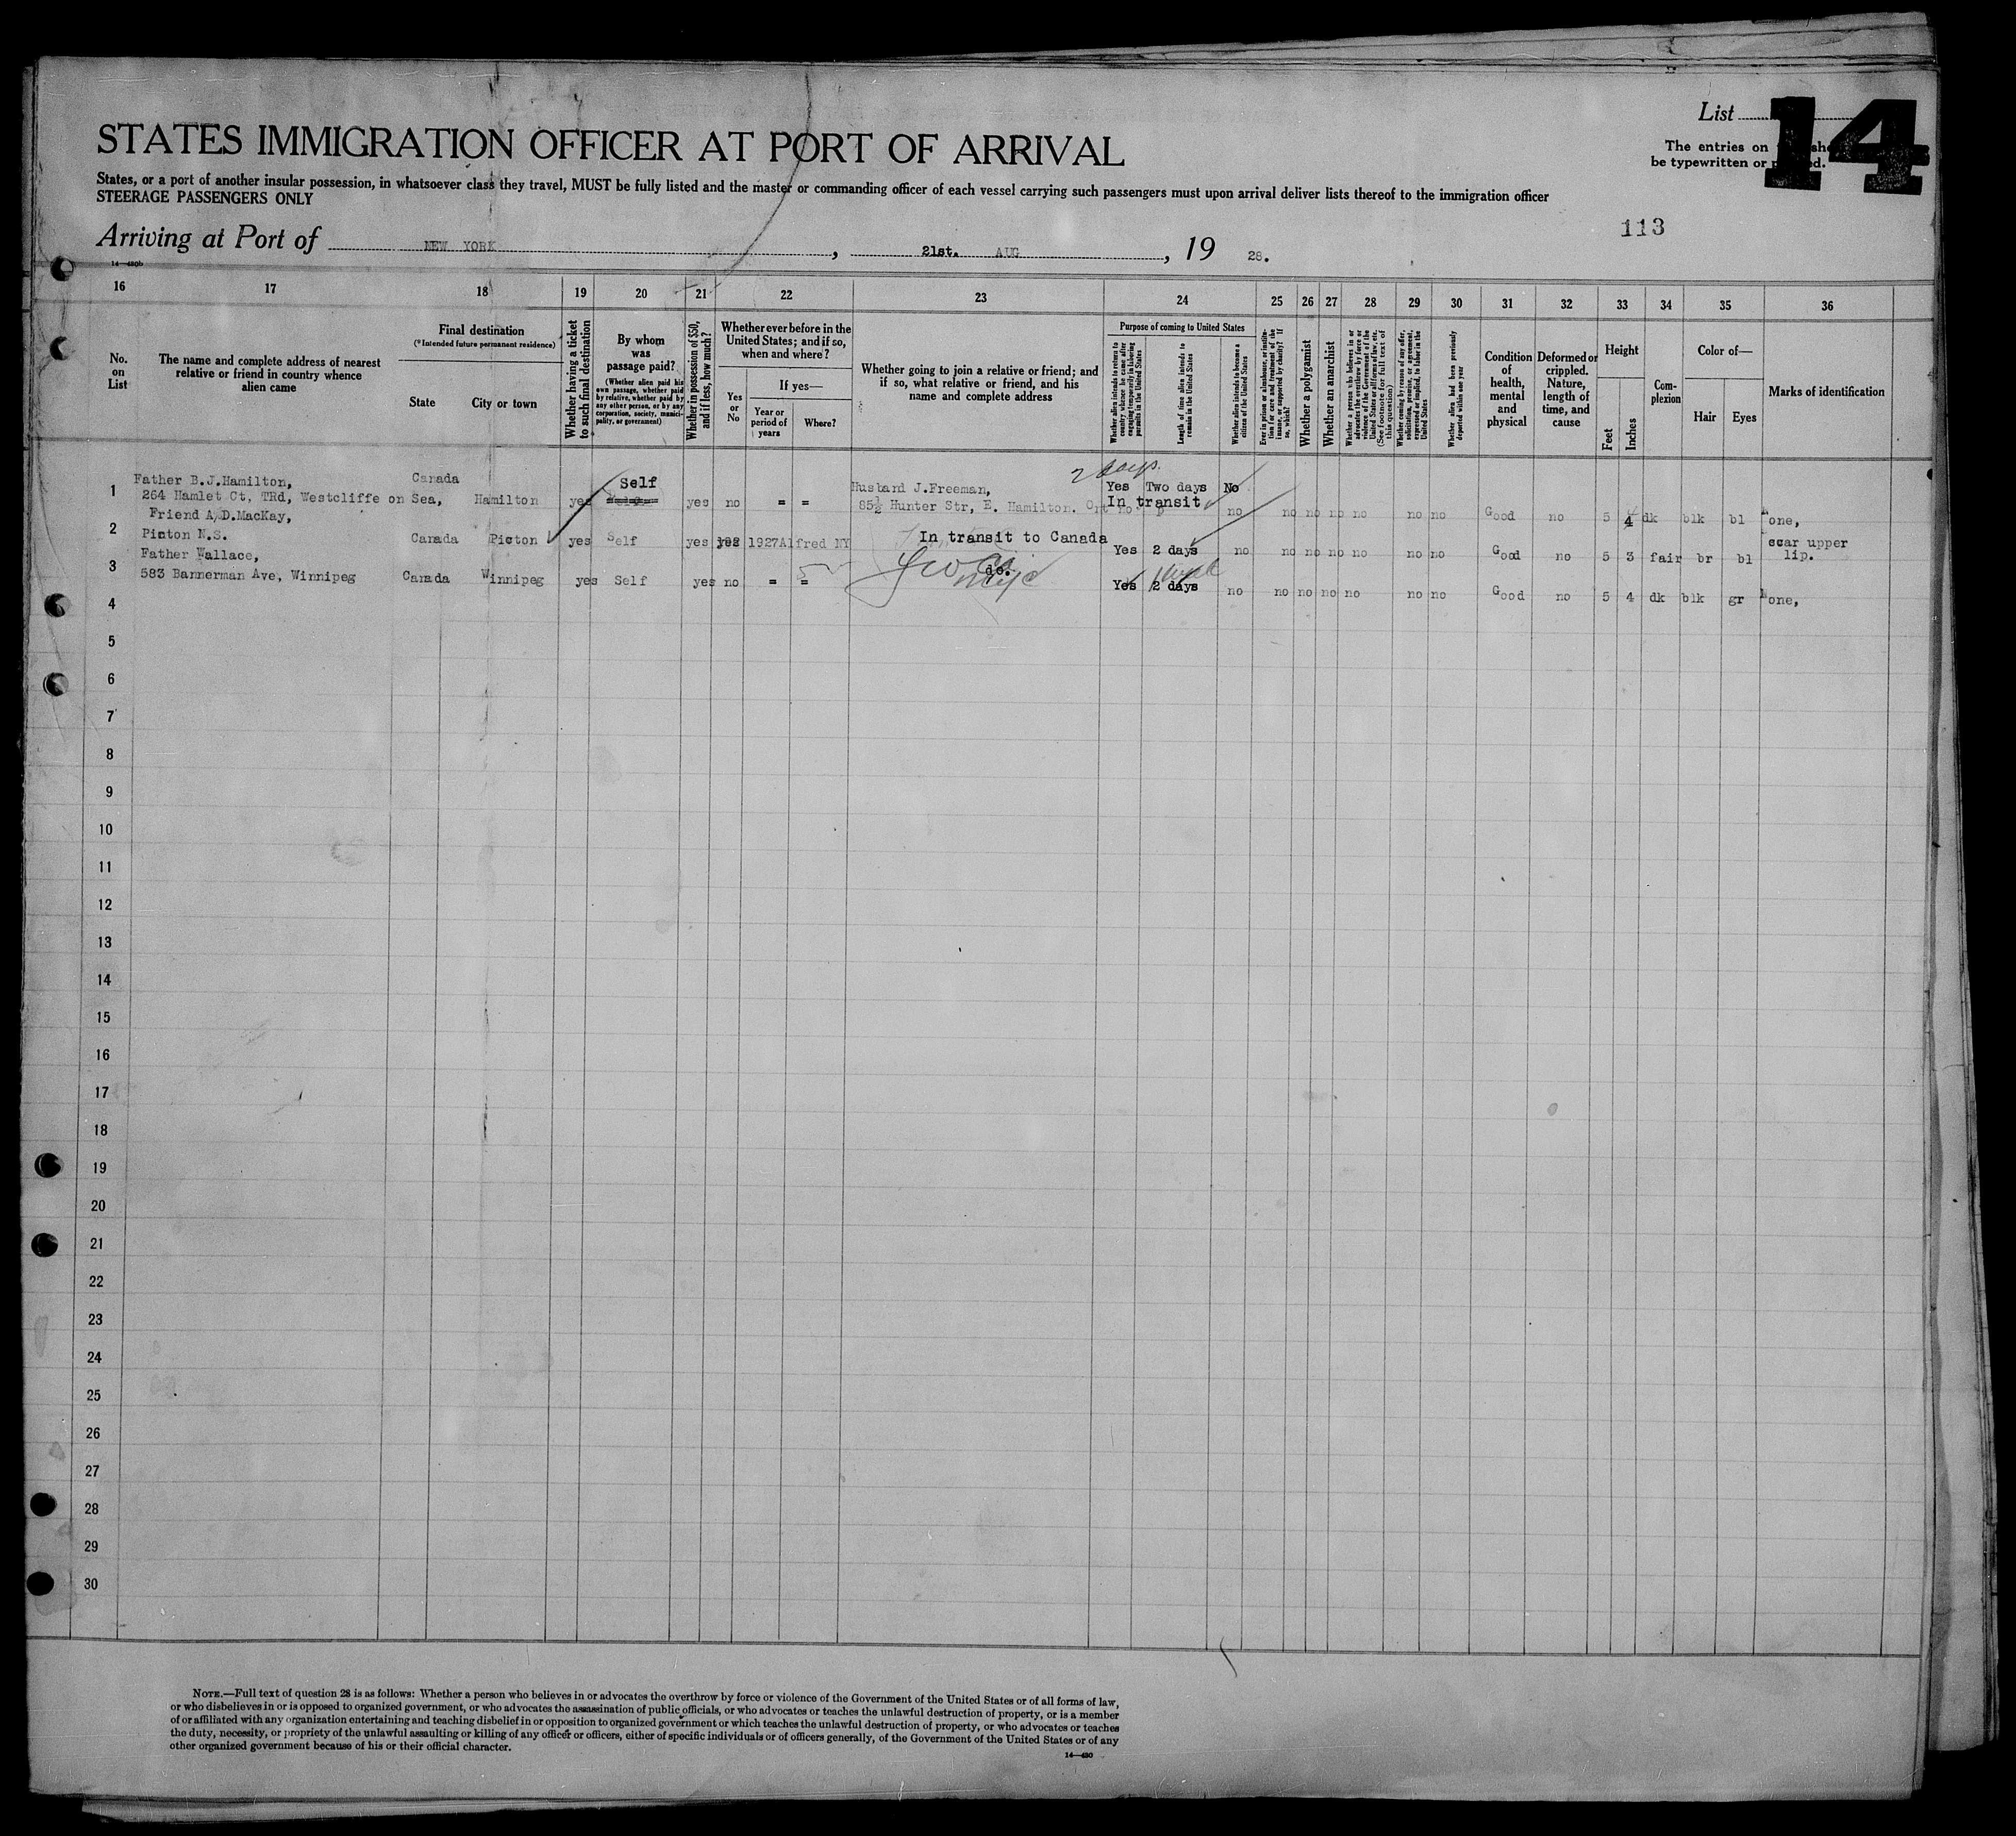 List 14
STATES IMMIGRATION OFFICER AT PORT OF ARRIVAL
The entries on
be typewritten or
States, or a port of another insular possession, in whatsoever class they travel, MUST be fully listed and the master or commanding officer of each vessel carrying such passengers must upon arrival deliver lists thereof to the immigration officer
STEERAGE PASSENGERS ONLY
113
Arriving at Port of NEW YORK, 21st. AUG, 19 28.
14—480b
16 17 18 19 20 21 22 23 24 25 26 27 28 29 30 31 32 33 34 35 36
No. on List
The name and complete address of nearest relative or friend in country whence alien came
Final destination
(*Intended future permanent residence)
State
City or town
Whether having a ticket to such final destination
By whom was passage paid?
(Whether alien paid his own passage, whether paid by relative, whether paid by any other person, or by any corporation, society, municipality, or government)
Whether in possession of $50, and if less, how much?
Whether ever before in the United States; and if so, when and where?
Yes or No
If yes—
Year or period of years
Where?
Whether going to join a relative or friend; and if so, what relative or friend, and his name and complete address
Purpose of coming to United States
Whether alien intends to return to country whence he came after engaging temporarily in laboring pursuits in the United States
Length of time alien intends to remain in the United States
Whether alien intends to become a citizen of the United States
Ever in prison or almshouse, or institution for care and treatment of the insane, or supported by charity? If so, which?
Whether a polygamist
Whether an anarchist
Whether a person who believes in or advocates the overthrow by force or violence of the Government of the United States or all forms of law, etc. (See footnote for full text of this question)
Whether coming by reason of any offer, solicitation, promise, or agreement, expressed or implied, to labor in the United States
Whether alien had been previously deported within one year
Condition of health, mental and physical
Deformed or crippled. Nature, length of time, and cause
Height
Feet
Inches
Complexion
Color of—
Hair
Eyes
Marks of identification
2 days
Father B.J.Hamilton, Canada Self Husband J.Freeman, Yes Two days No
1 264 Hamlet Ct, TRd, Westcliffe on Sea, Hamilton yes yes no = = 85½ Hunter Str, E. Hamilton. In transit no no no no no no no Good no 5 4 dk blk bl None,
Friend A.D.MacKay,
2 Picton N.S. Canada Picton yes Self yes yes 1927 Alfred NY In transit to Canada Yes 2 days no no no no no no no Good no 5 3 fair br bl scar upper lip.
Father Wallace,
3 583 Bannerman Ave, Winnipeg Canada Winnipeg yes Self yes no = = do. Yes 2 days no no no no no no no Good no 5 4 dk blk gr None,
4
5
6
7
8
9
10
11
12
13
14
15
16
17
18
19
20
21
22
23
24
25
26
27
28
29
30
NOTE.—Full text of question 28 is as follows: Whether a person who believes in or advocates the overthrow by force or violence of the Government of the United States or of all forms of law,
or who disbelieves in or is opposed to organized government, or who advocates the assassination of public officials, or who advocates or teaches the unlawful destruction of property, or is a member
of or affiliated with any organization entertaining and teaching disbelief in or opposition to organized government or which teaches the unlawful destruction of property, or who advocates or teaches
the duty, necessity, or propriety of the unlawful assaulting or killing of any officer or officers, either of specific individuals or of officers generally, of the Government of the United States or of any
other organized government because of his or their official character.
14—480